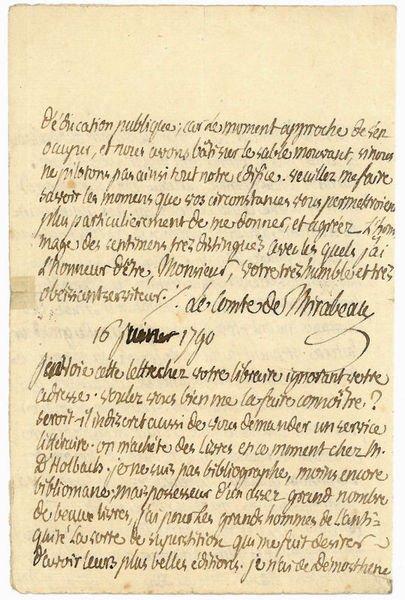 d'éducation publique; car le moment approche de s'en
occuper, et nous avons bâti sur le sable mouvant, si nous
ne pilotons pas ainsi tout notre édifice. veuillez me faire
savoir les momens que vos circonstances vous permettroient
plus particulierement de me donner, et agréez l'hom
mage des sentimens très distingués avec les quels j'ai
l'honneur d'être, Monsieur, votre très humble et très
obeissant serviteur.
le Comte de Mirabeau
16 1790
j'envoie cette lettre chez votre libraire ignorant votre
adresse. voulez vous bien me la faire connoître?
seroit-il indiscret aussi de vous demander un service
littéraire. on m'achète des livres en ce moment chez M.
D'Holbach. je ne suis pas bibliographe, moins encore
bibliomane; mais possesseur d'un assez grand nombre
de beaux livres, j'ai pour les grands hommes de l'anti-
quité la sorte de superstition qui me fait desirer
d'avoir leurs plus belles éditions. je n'ai de démosthene